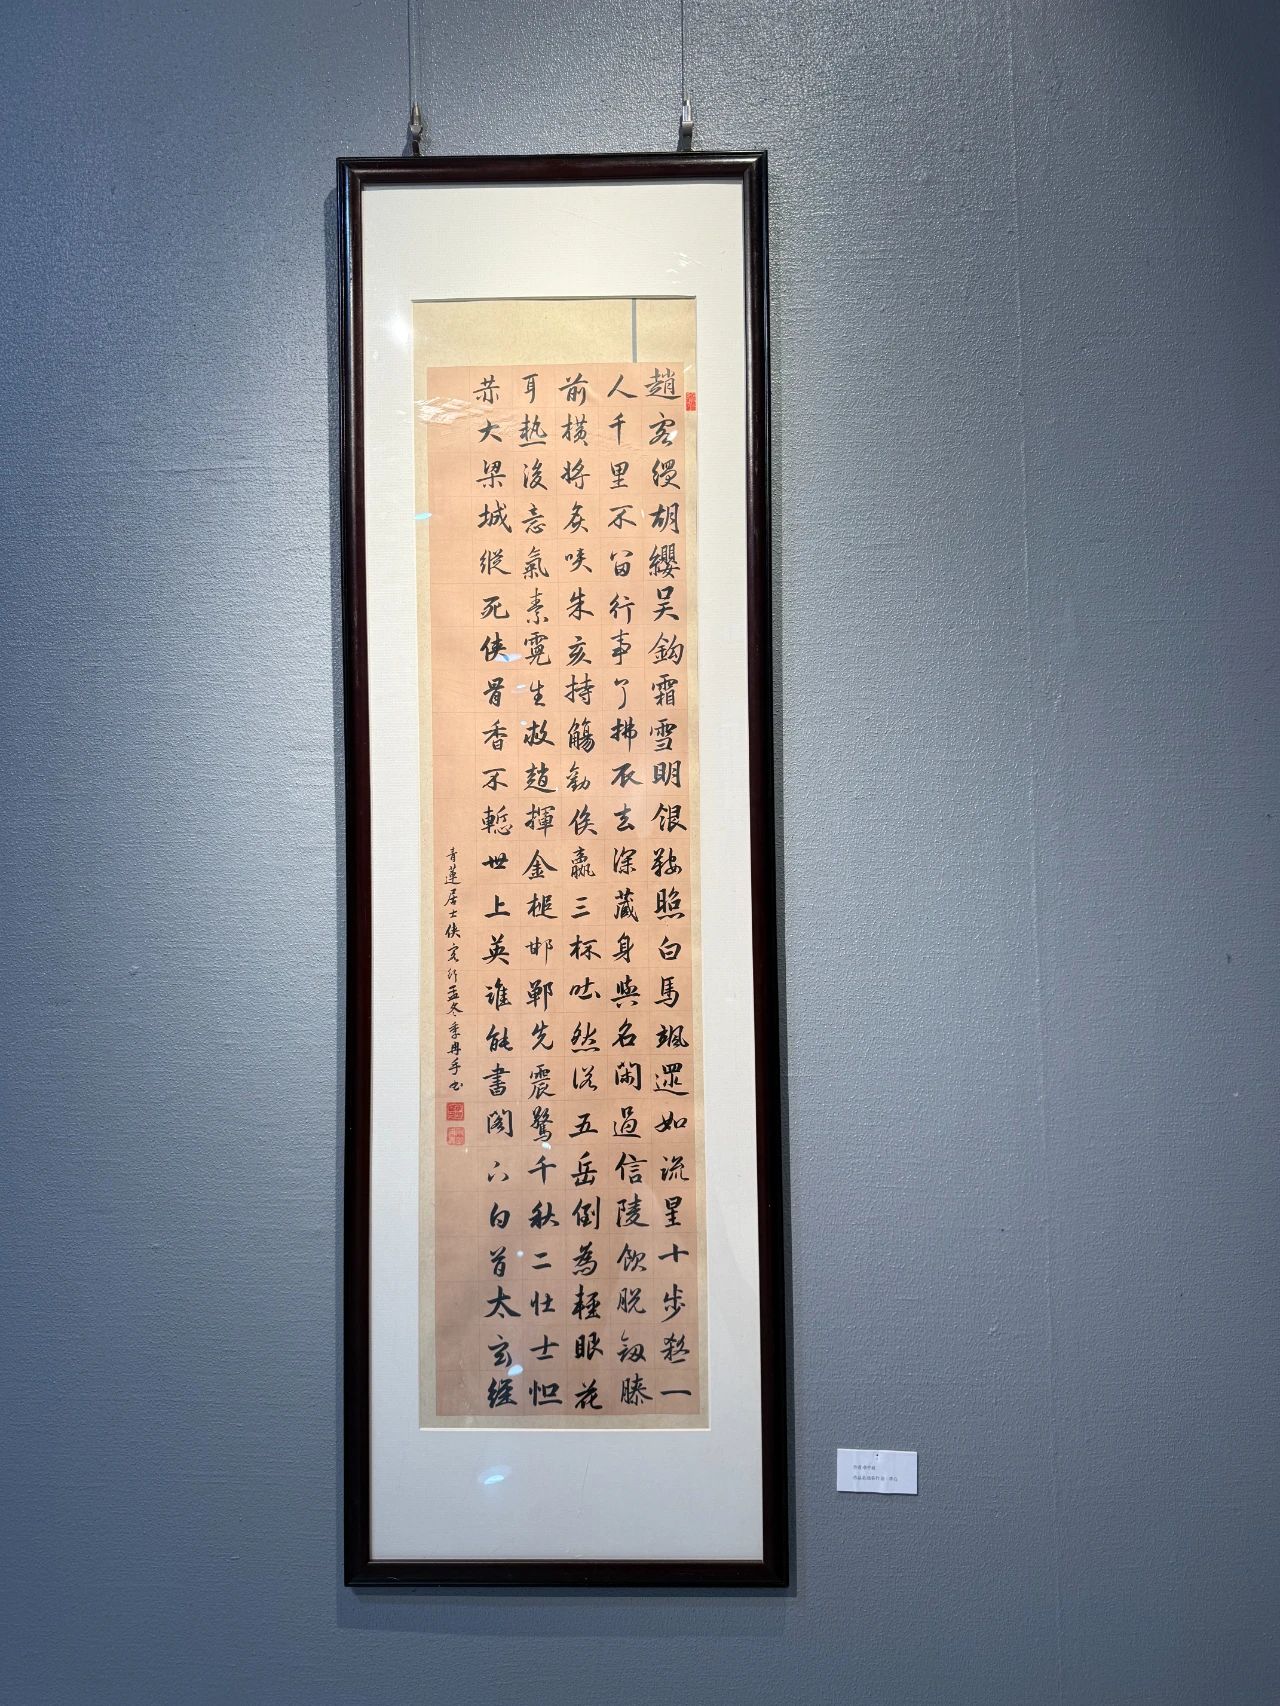 趙客縵胡纓吳鈎霜雪明銀鞍照白馬颯遝如流星十步殺一
人千里不留行事了拂衣去深藏身與名閑過信陵飲脫劔膝
前橫將炙啖朱亥持觴勸侯嬴三杯吐然諾五岳倒為輕眼花
耳熱後意氣素霓生救趙揮金槌邯鄲先震驚千秋二壯士怛
恭大梁城縱死俠骨香不慙世上英誰能書閣下白首太玄經
青蓮居士俠客行孟冬季冉手书